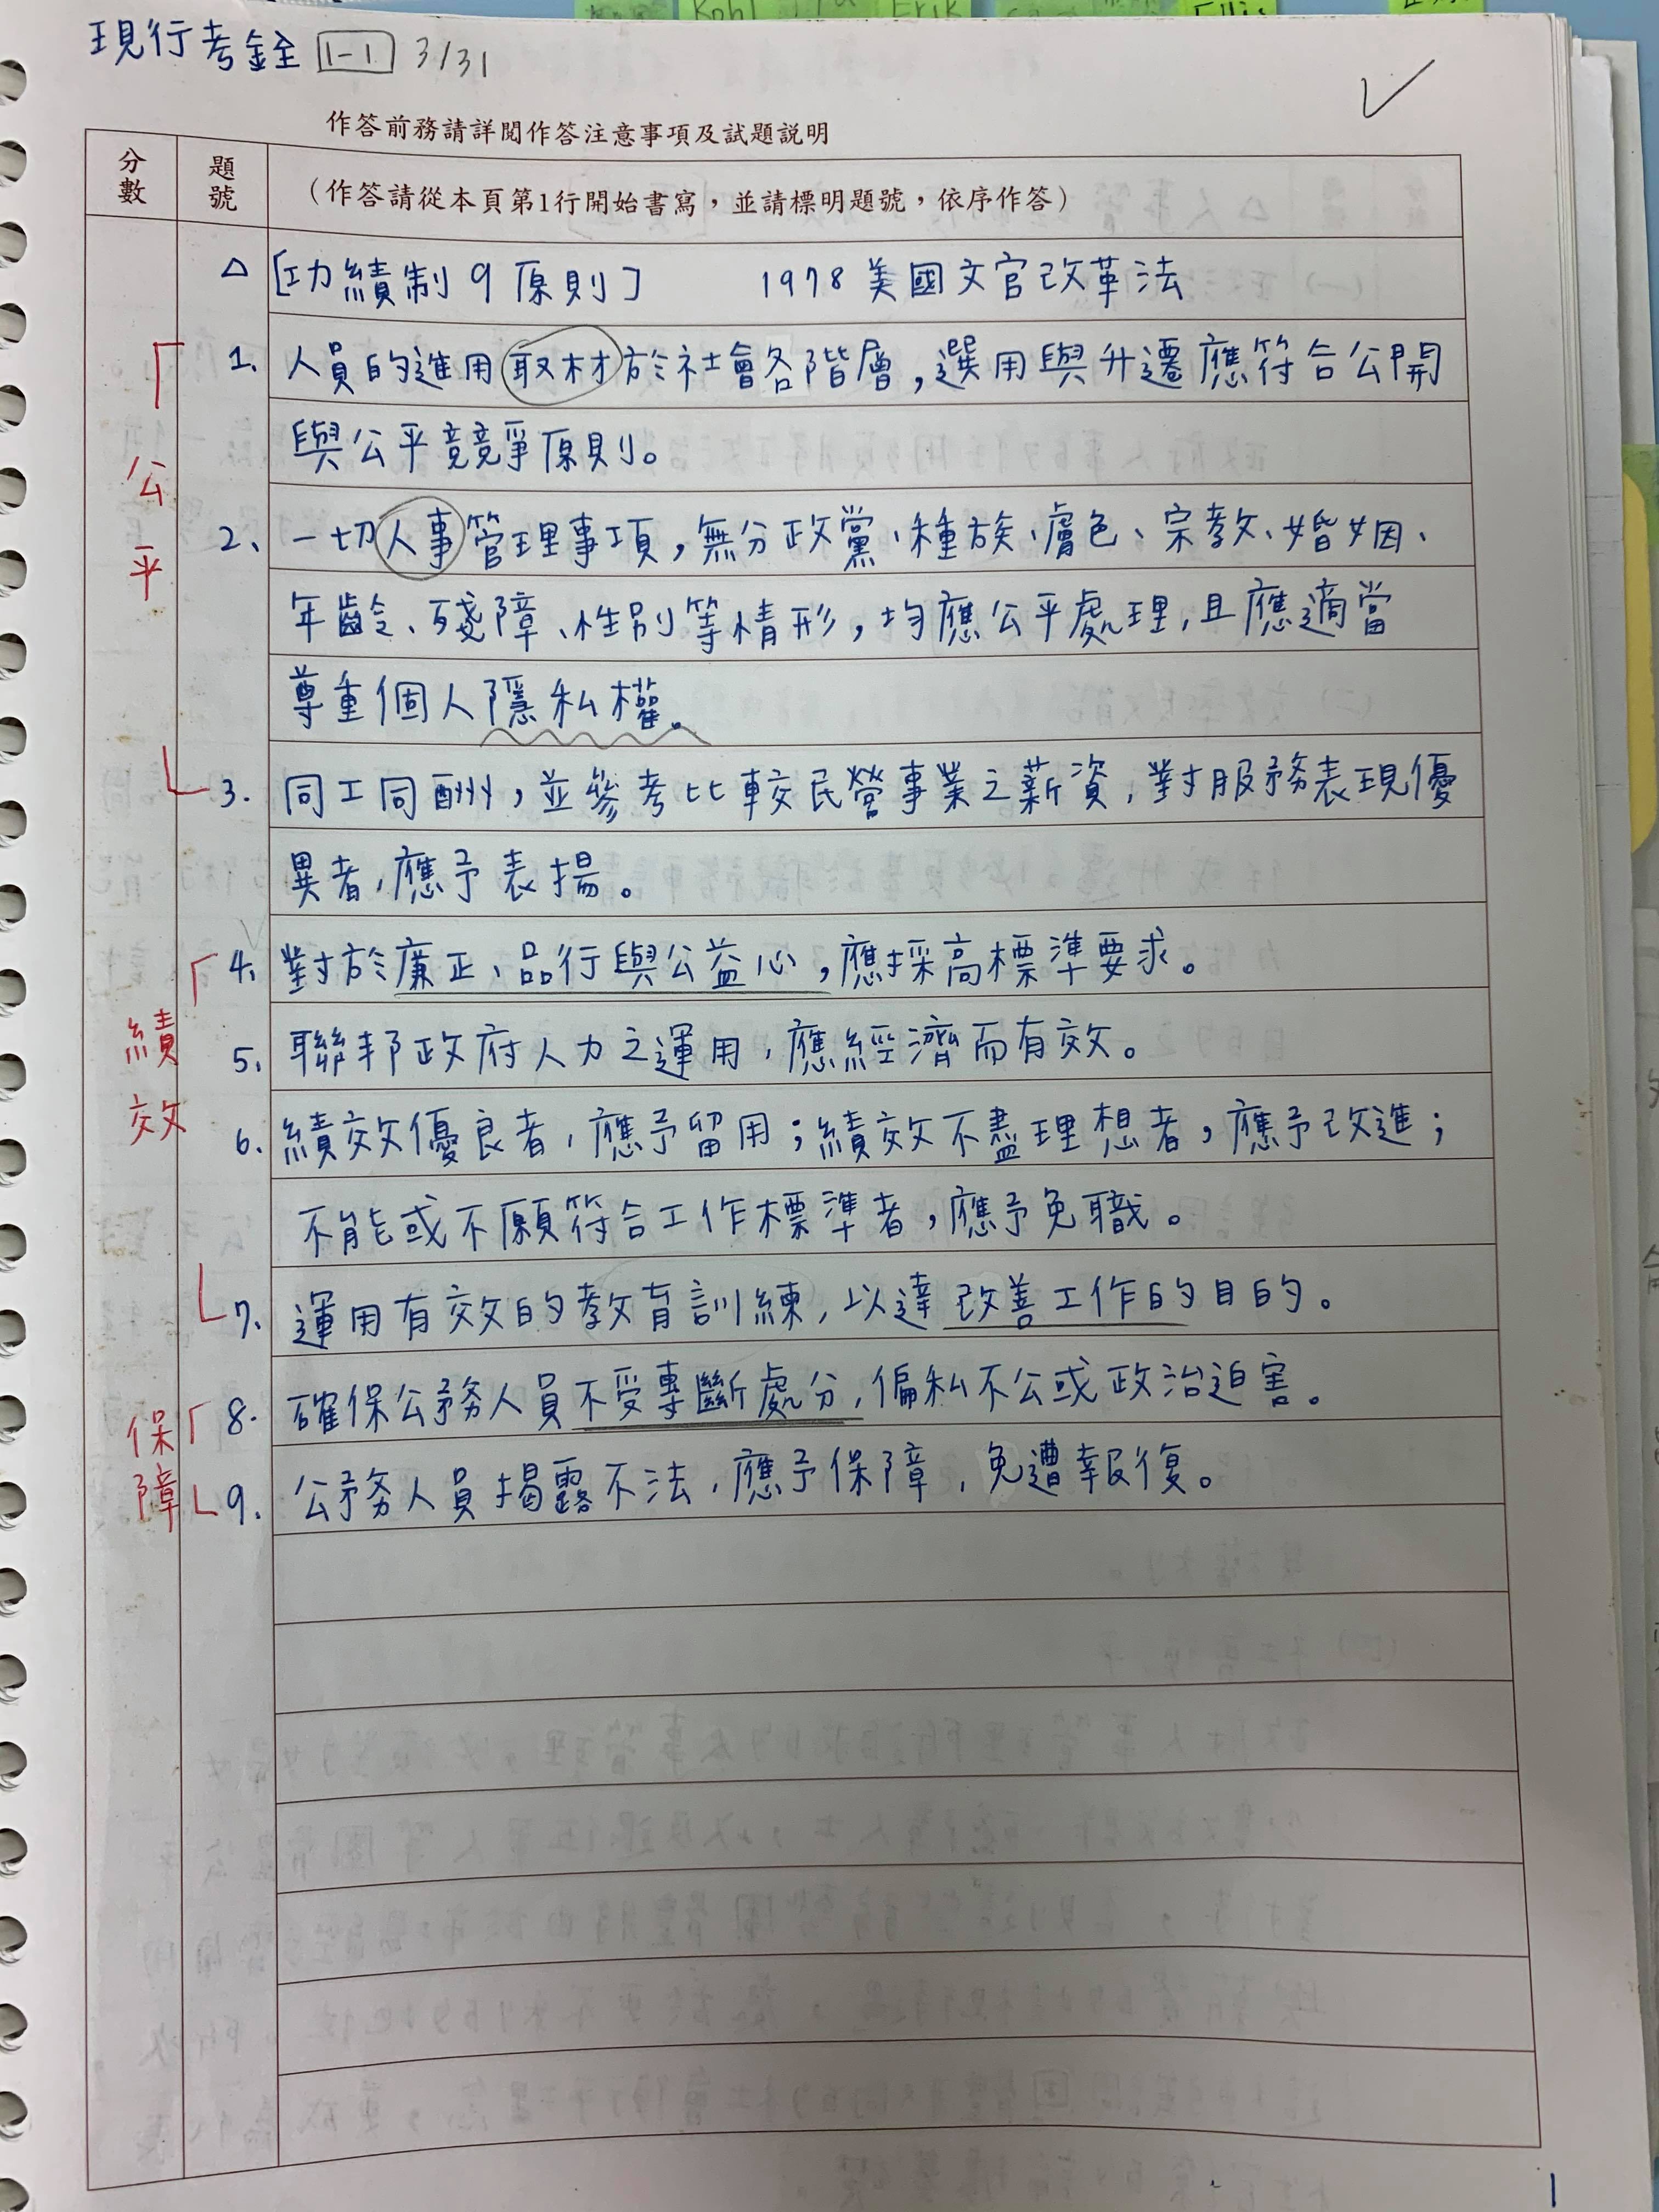 現行考銓 1-1 3/31
作答前務請詳閱作答注意事項及試題說明
分數 題號 （作答請從本頁第1行開始書寫，並請標明題號，依序作答）
△ [功績制9原則] 1978美國文官改革法
1. 人員的進用取材於社會各階層，選用與升遷應符合公開
與公平競爭原則。
公平
2、一切人事管理事項，無分政黨、種族、膚色、宗教、婚姻、
年齡、殘障、性別等情形，均應公平處理，且應適當
尊重個人隱私權。
3. 同工同酬，並參考比較民營事業之薪資，對服務表現優
異者，應予表揚。
4、對於廉正、品行與公益心，應採高標準要求。
績效
5. 聯邦政府人力之運用，應經濟而有效。
6. 績效優良者，應予留用；績效不盡理想者，應予改進；
不能或不願符合工作標準者，應予免職。
7. 運用有效的教育訓練，以達改善工作的目的。
保障
8. 確保公務人員不受專斷處分，偏私不公或政治迫害。
9. 公務人員揭露不法，應予保障，免遭報復。
1